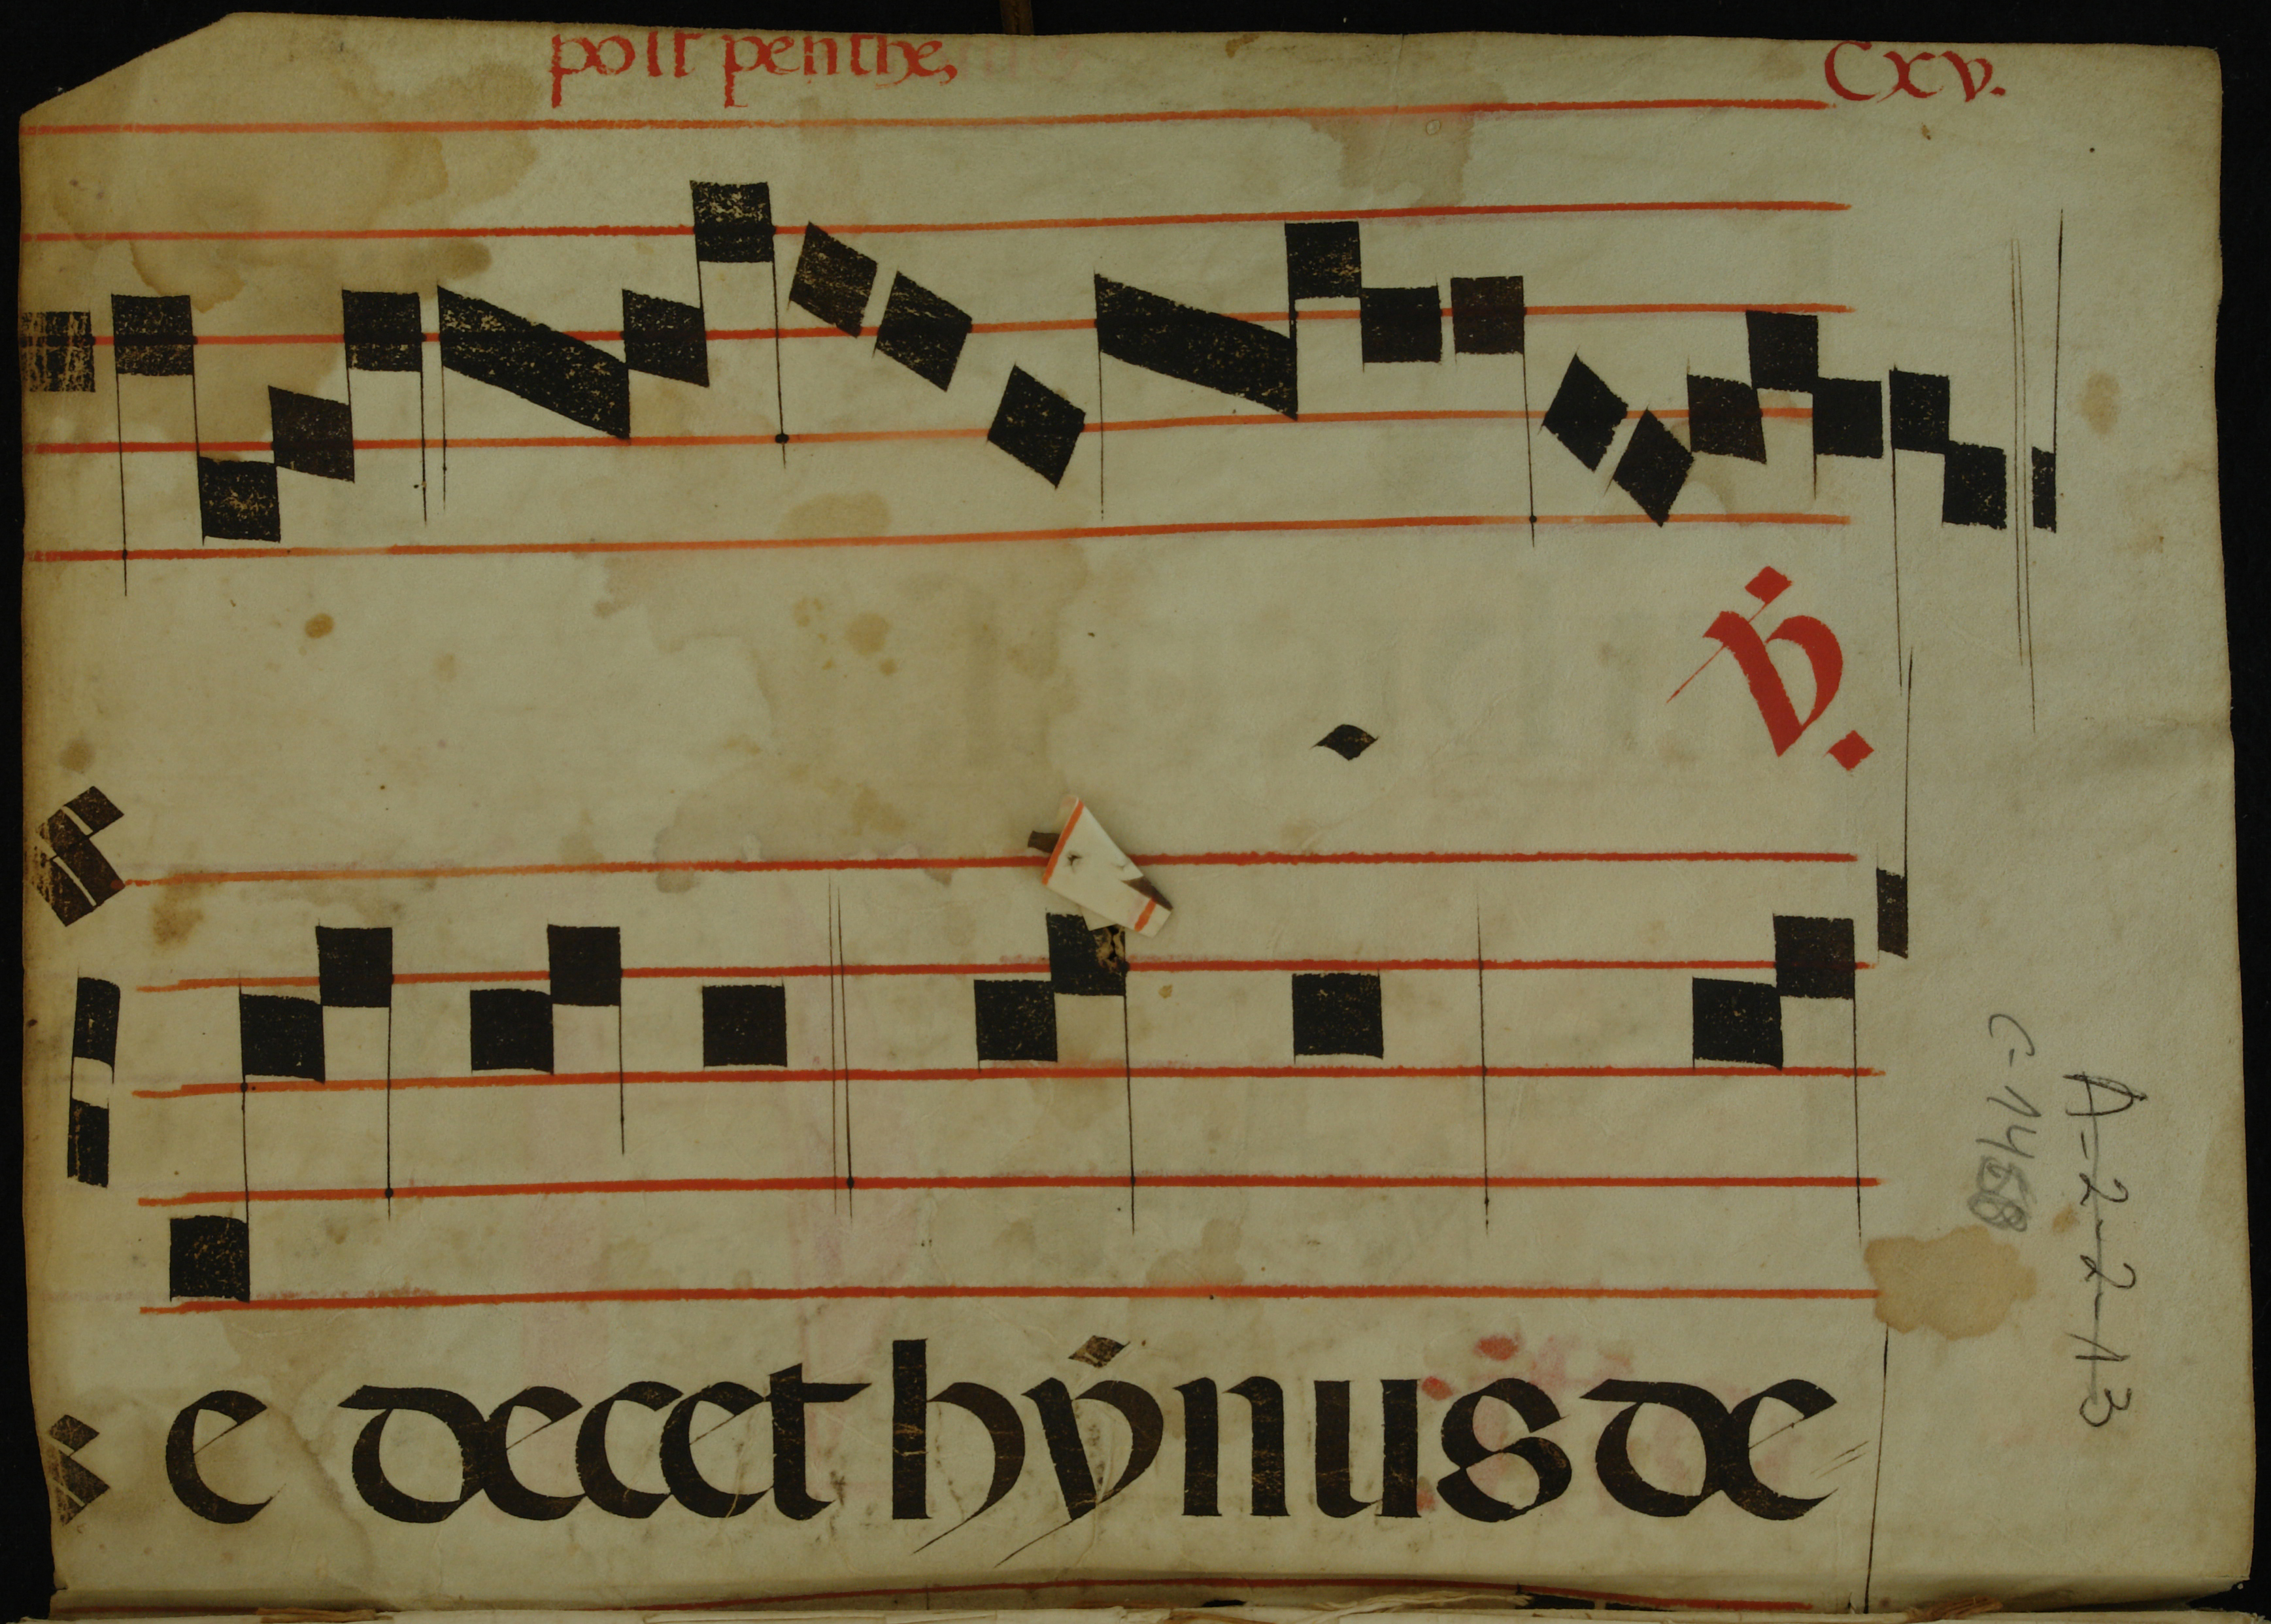 post penthe, Cxv.
V.
e decet hẏnus de
C-1458
A-2-2-13